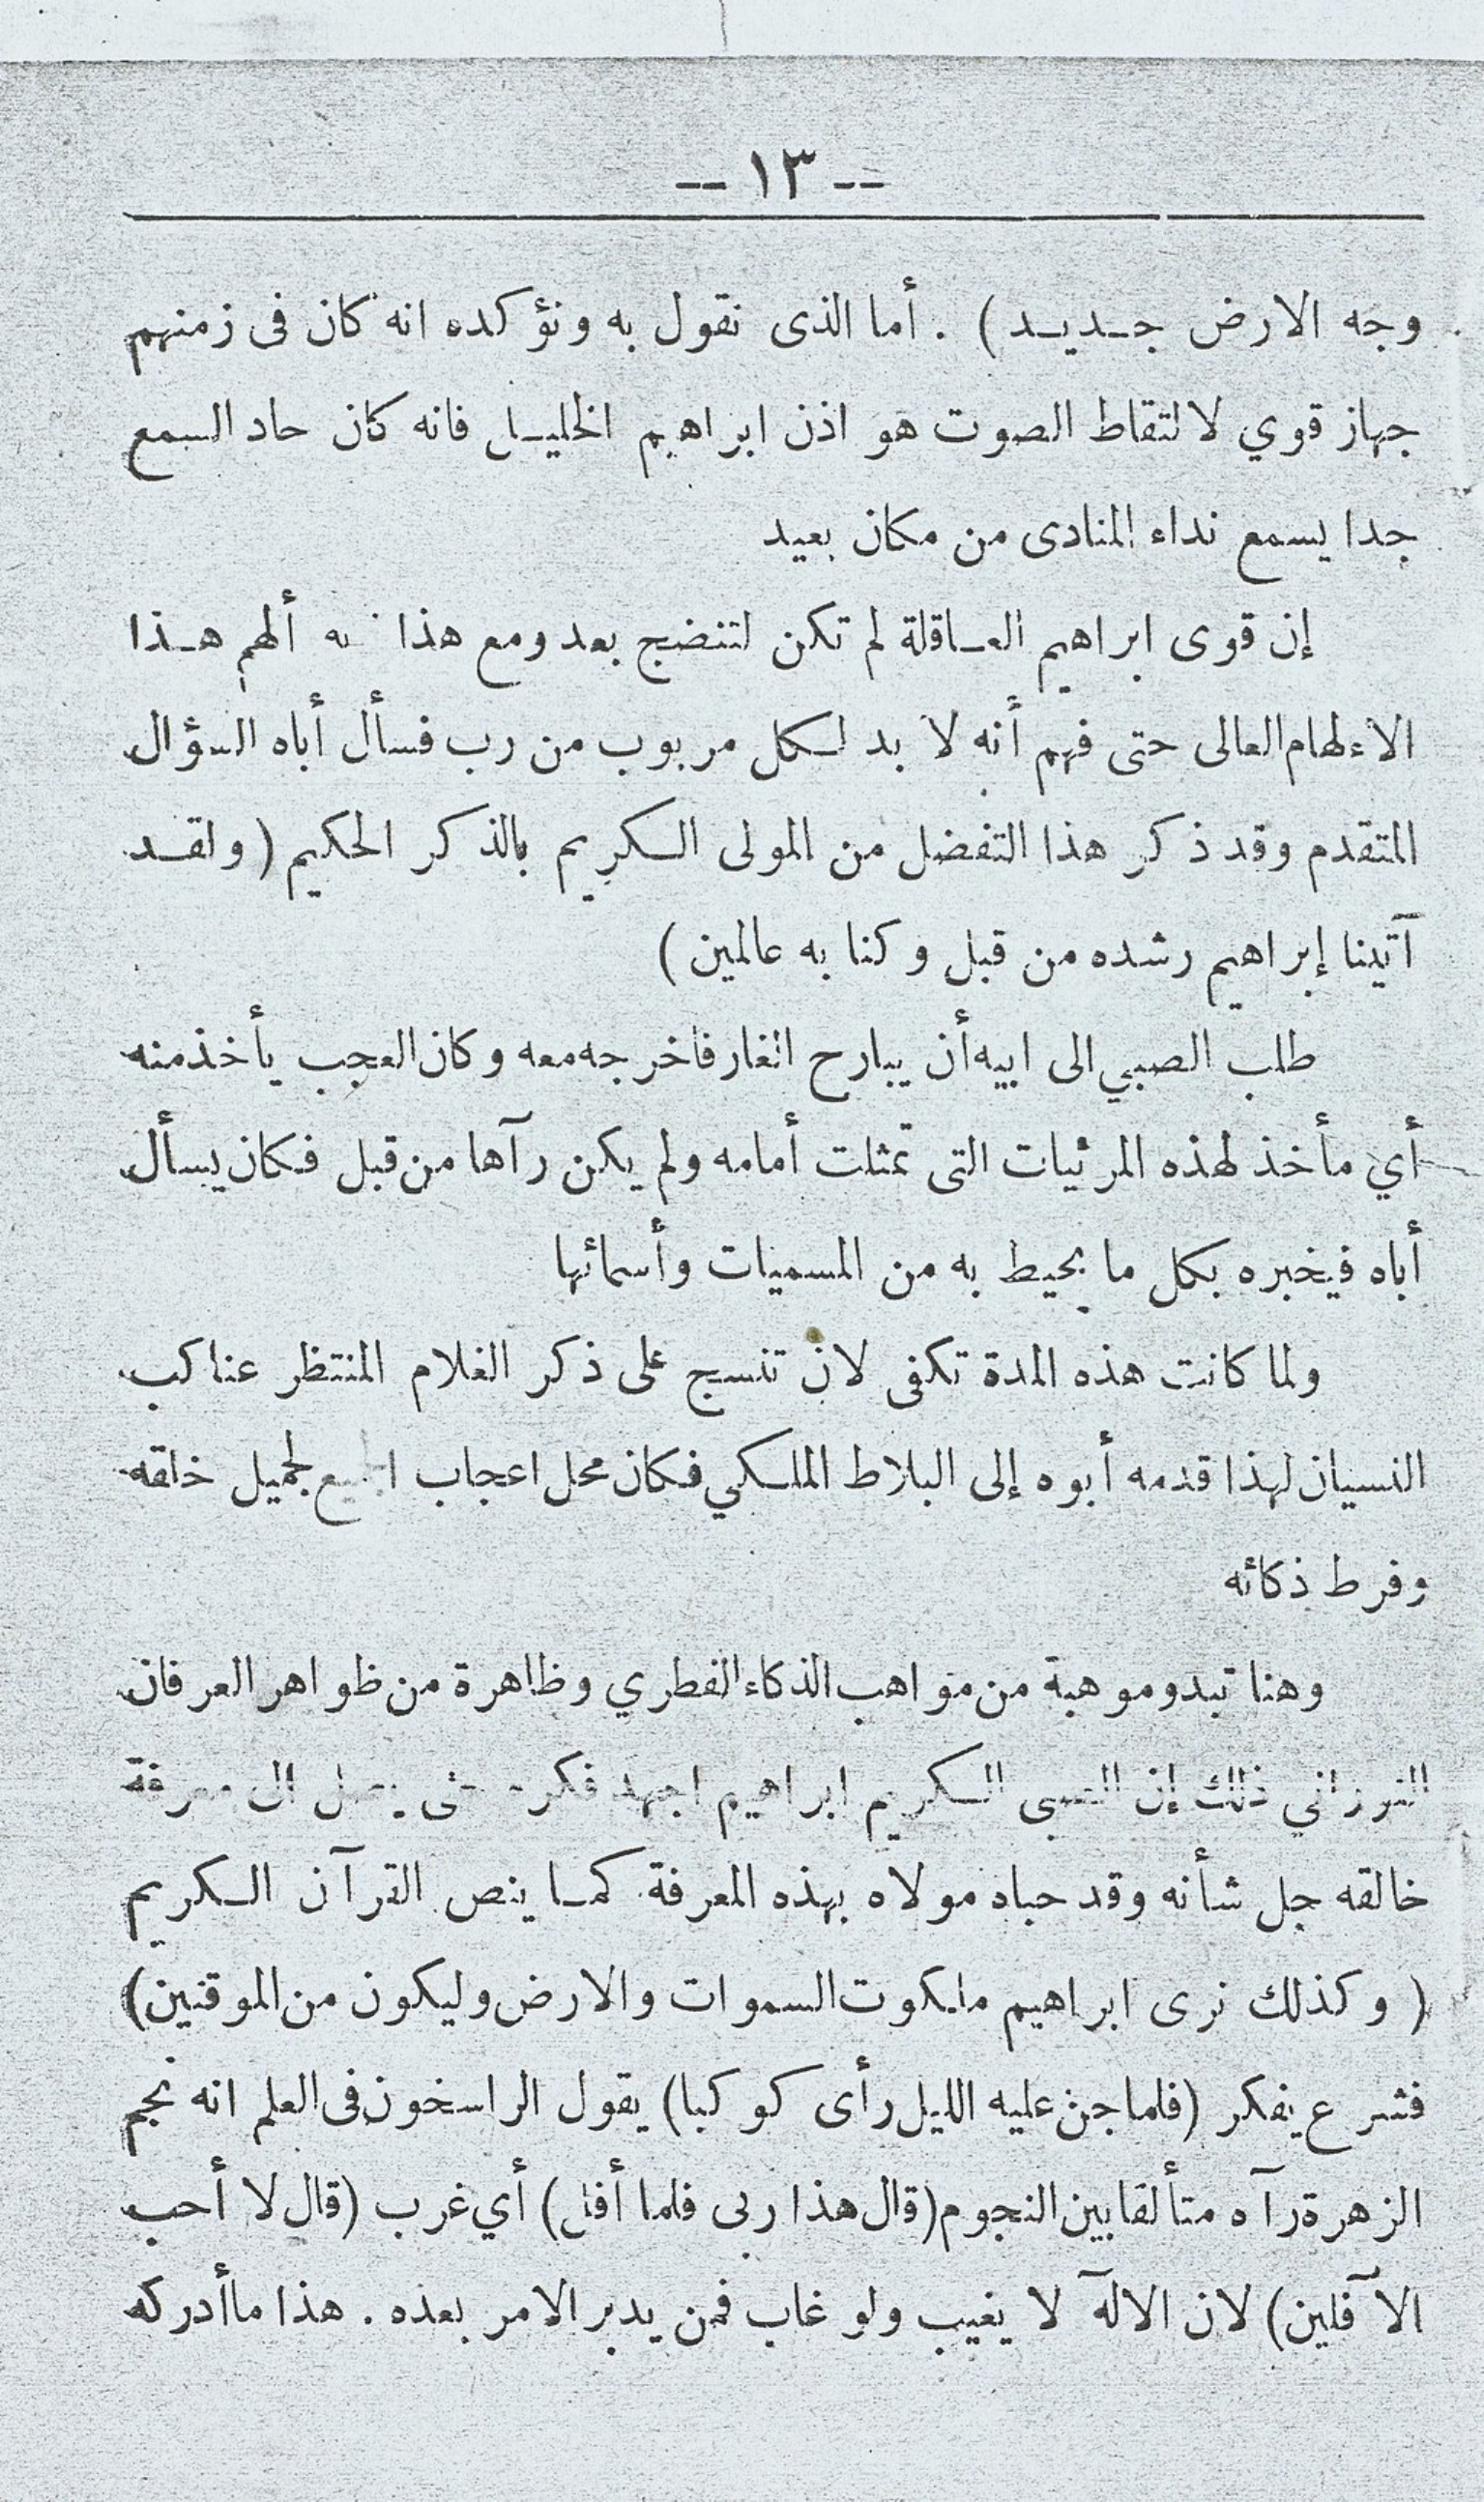 -- ١٣ --
وجه الارض جـديـد ) . أما الذى نقول به ونؤكده انه كان فى زمنهم
جهاز قوي لالتقاط الصوت هو اذن ابراهيم الخليـل فانه كان حاد السمع
جدا يسمع نداء المنادى من مكان بعيد
إن قوى ابراهيم العـاقلة لم تكن لتنضج بعد ومع هذا ألهم هـذا
الاءلهام العالى حتى فهم أنه لا بد لـكل مربوب من رب فسأل أباه السؤال
المتقدم وقد ذكر هذا التفضل من المولى الـكريم بالذكر الحكيم ( ولقـد
آتينا إبراهيم رشده من قبل وكنا به عالمين )
طلب الصبي الى ابيه أن يبارح الغار فاخرجه معه وكان العجب يأخذ منه
أي مأخذ لهذه المرئيات التى تمثلت أمامه ولم يكن رآها من قبل فـكان يسأل
أباه فيخبره بكل ما يحيط به من المسميات وأسمائها
ولما كانت هذه المدة تكفى لان تنسج على ذكر الغلام المنتظر عناكب
النسيان لهذا قدمه أبوه إلى البلاط الملـكي فـكان محل اعجاب لجميل خلقه
وفرط ذكائه
وهنا تبدو موهبة من مواهب الذكاء الفطري وظاهرة من ظواهر العرفان
ذلك إن الصبى الـكريم ابراهيم اجهد معرفة
خالقه جل شأنه وقد حباه مولاه بهذه المعرفة كمـا ينص القرآن الـكريم
( وكذلك نرى ابراهيم ملـكوت السموات والارض وليكون من الموقنين )
فشرع يفكر (فلما جن عليه الليل رأى كوكبا) يقول الراسخون فى العلم انه نجم
الزهرة رآه متألقا بين النجوم (قال هذا ربى فلما أفل ) أي غرب (قال لا أحب
الآفلين) لان الالآه لا يغيب ولو غاب فمن يدبر الامر بعده . هذا ما أدركه